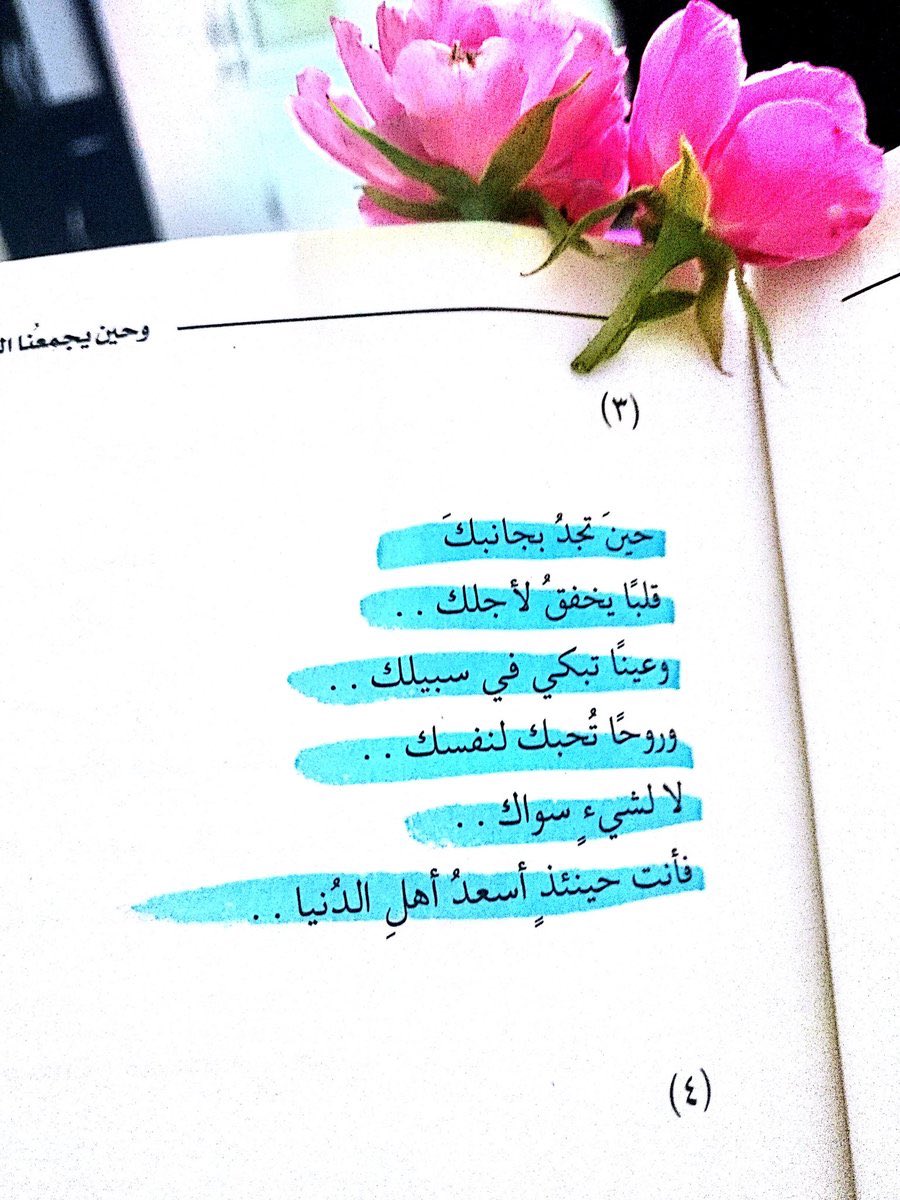 وحين يجمعُنا
(٣)
حينَ تجدُ بجانبكَ
قلبًا يخفقُ لأجلك . .
وعينًا تبكي في سبيلك . .
وروحًا تُحبك لنفسك . .
لا لشيءٍ سواك . .
فأنت حينئذٍ أسعدُ أهلِ الدُنيا . .
(٤)